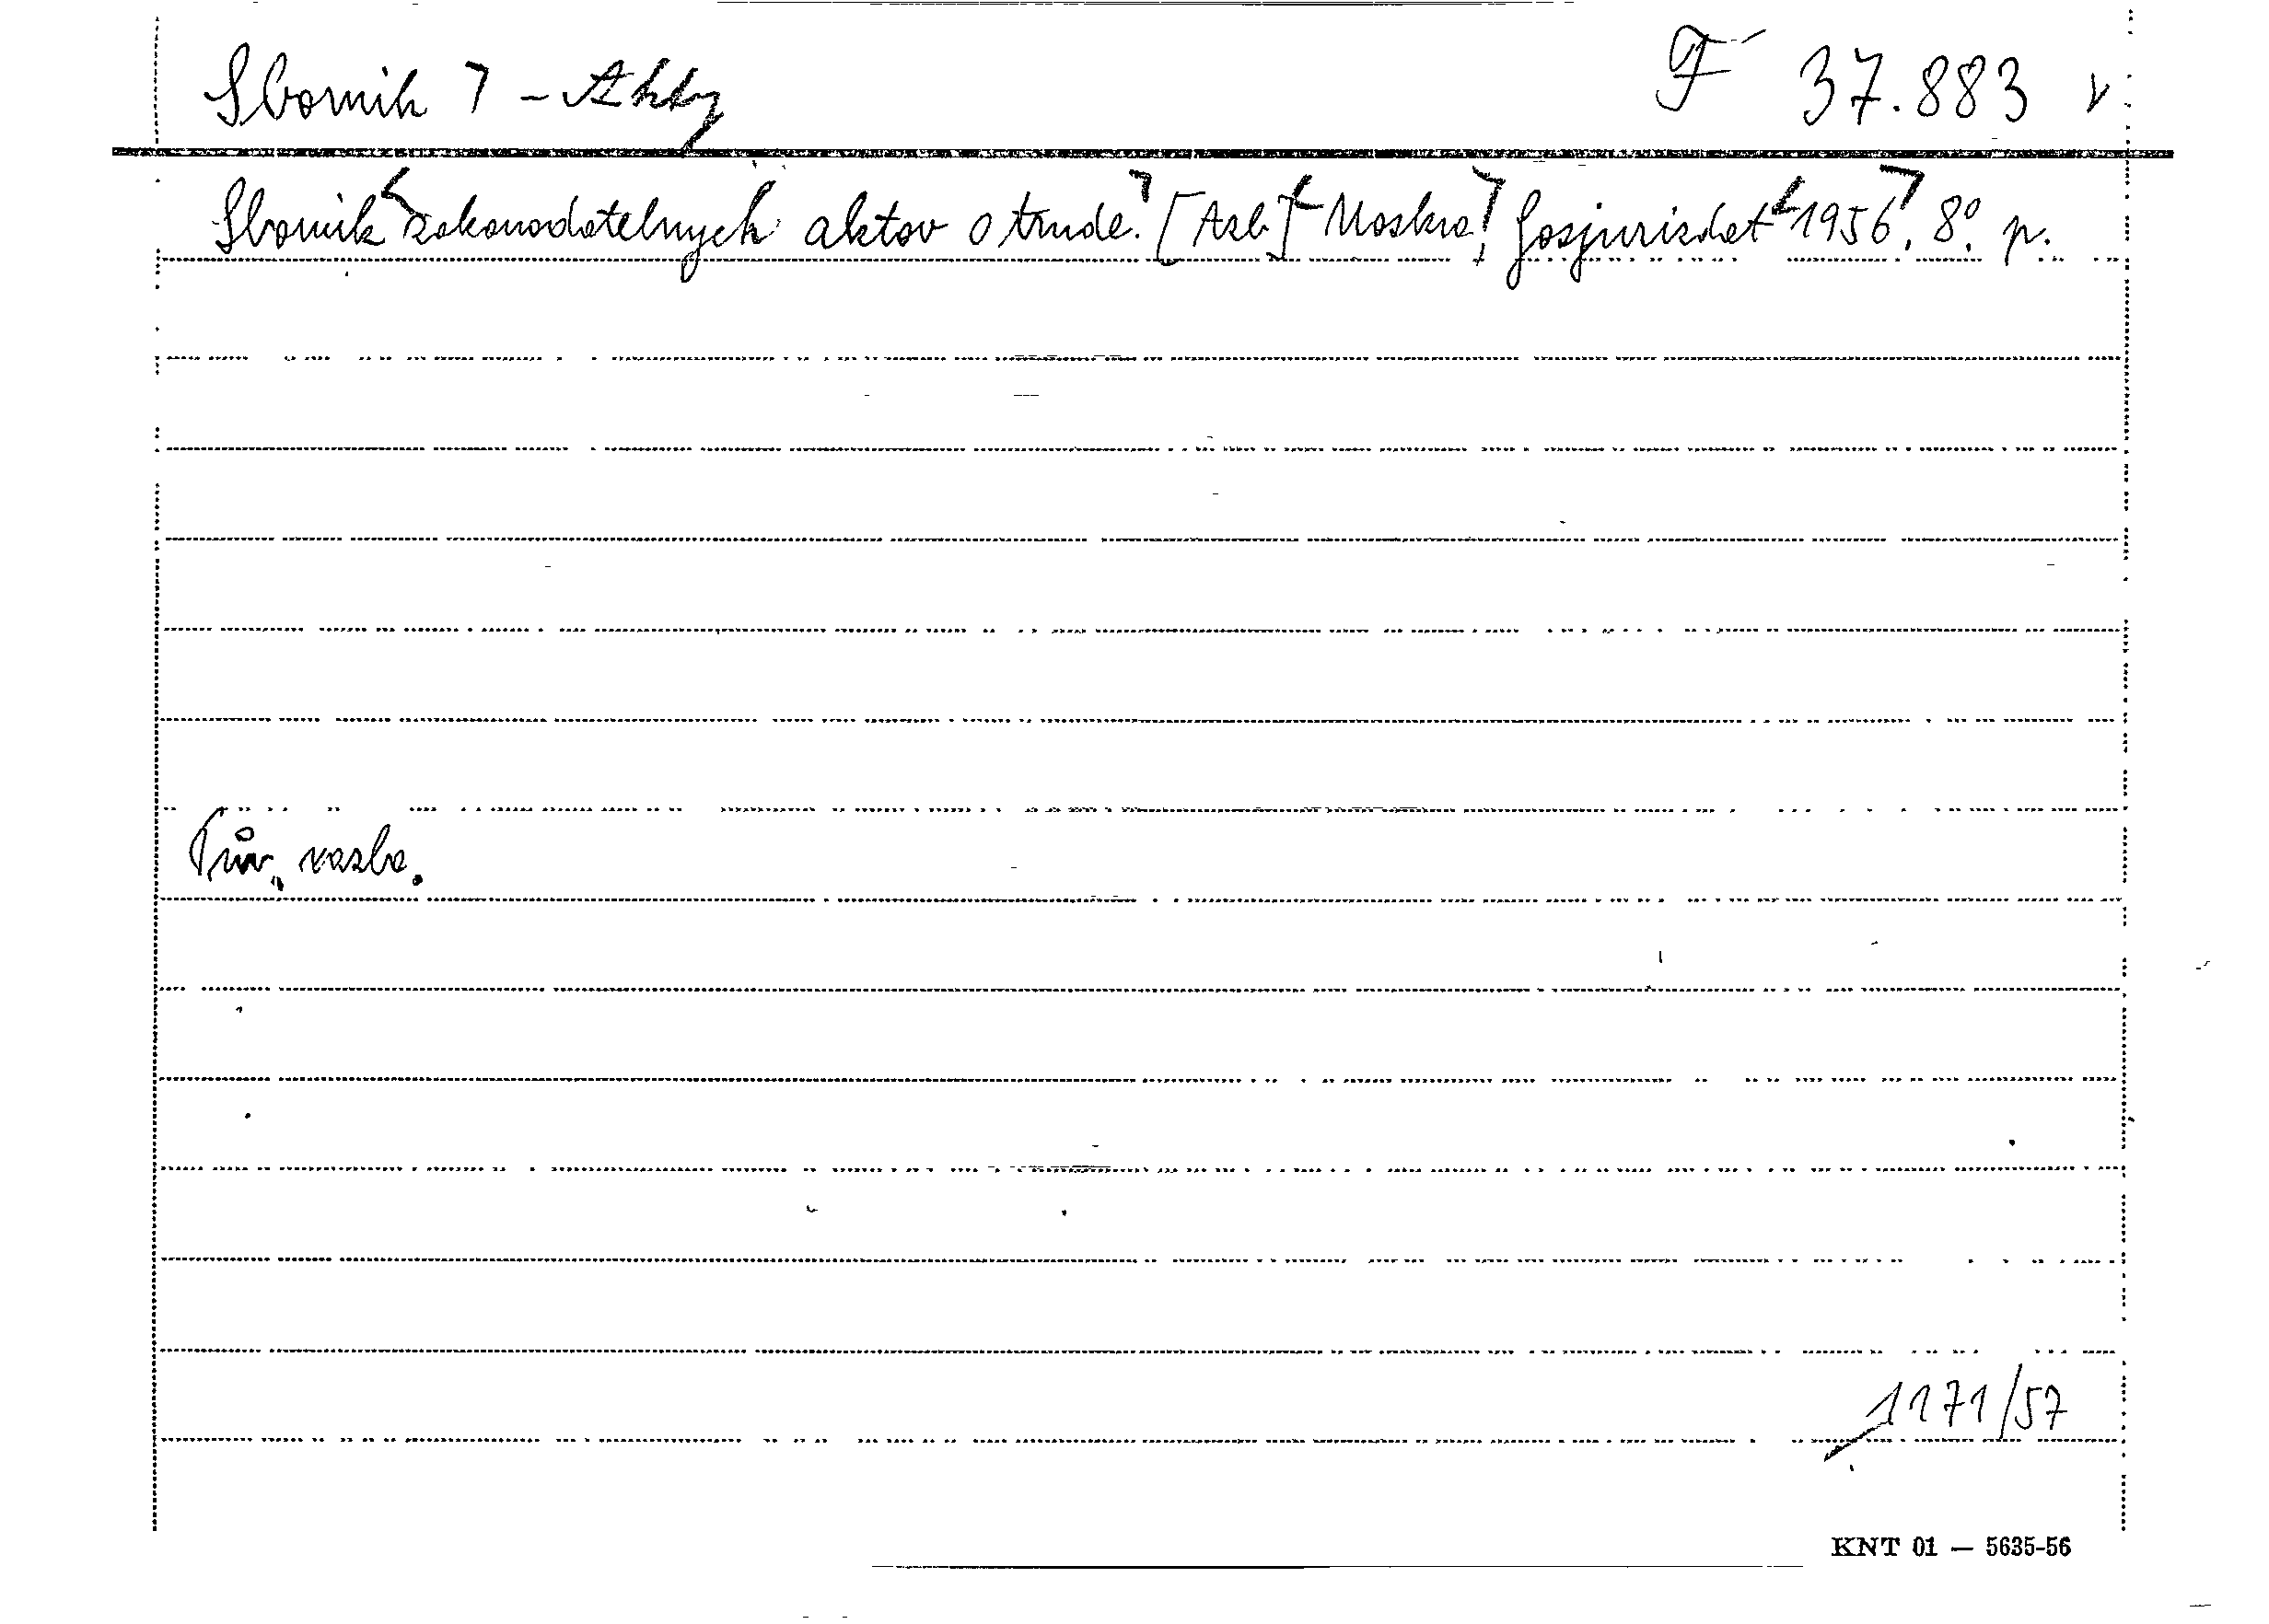 Sbornik 7 - Akty F 37.883 v
Sbornik zakonodatelnych aktov o trude. [Azb.] Moskva, Gosjurizdat 1956. 8°. p.
Pův. vazba.
1171/57
KNT 01 — 5635-56